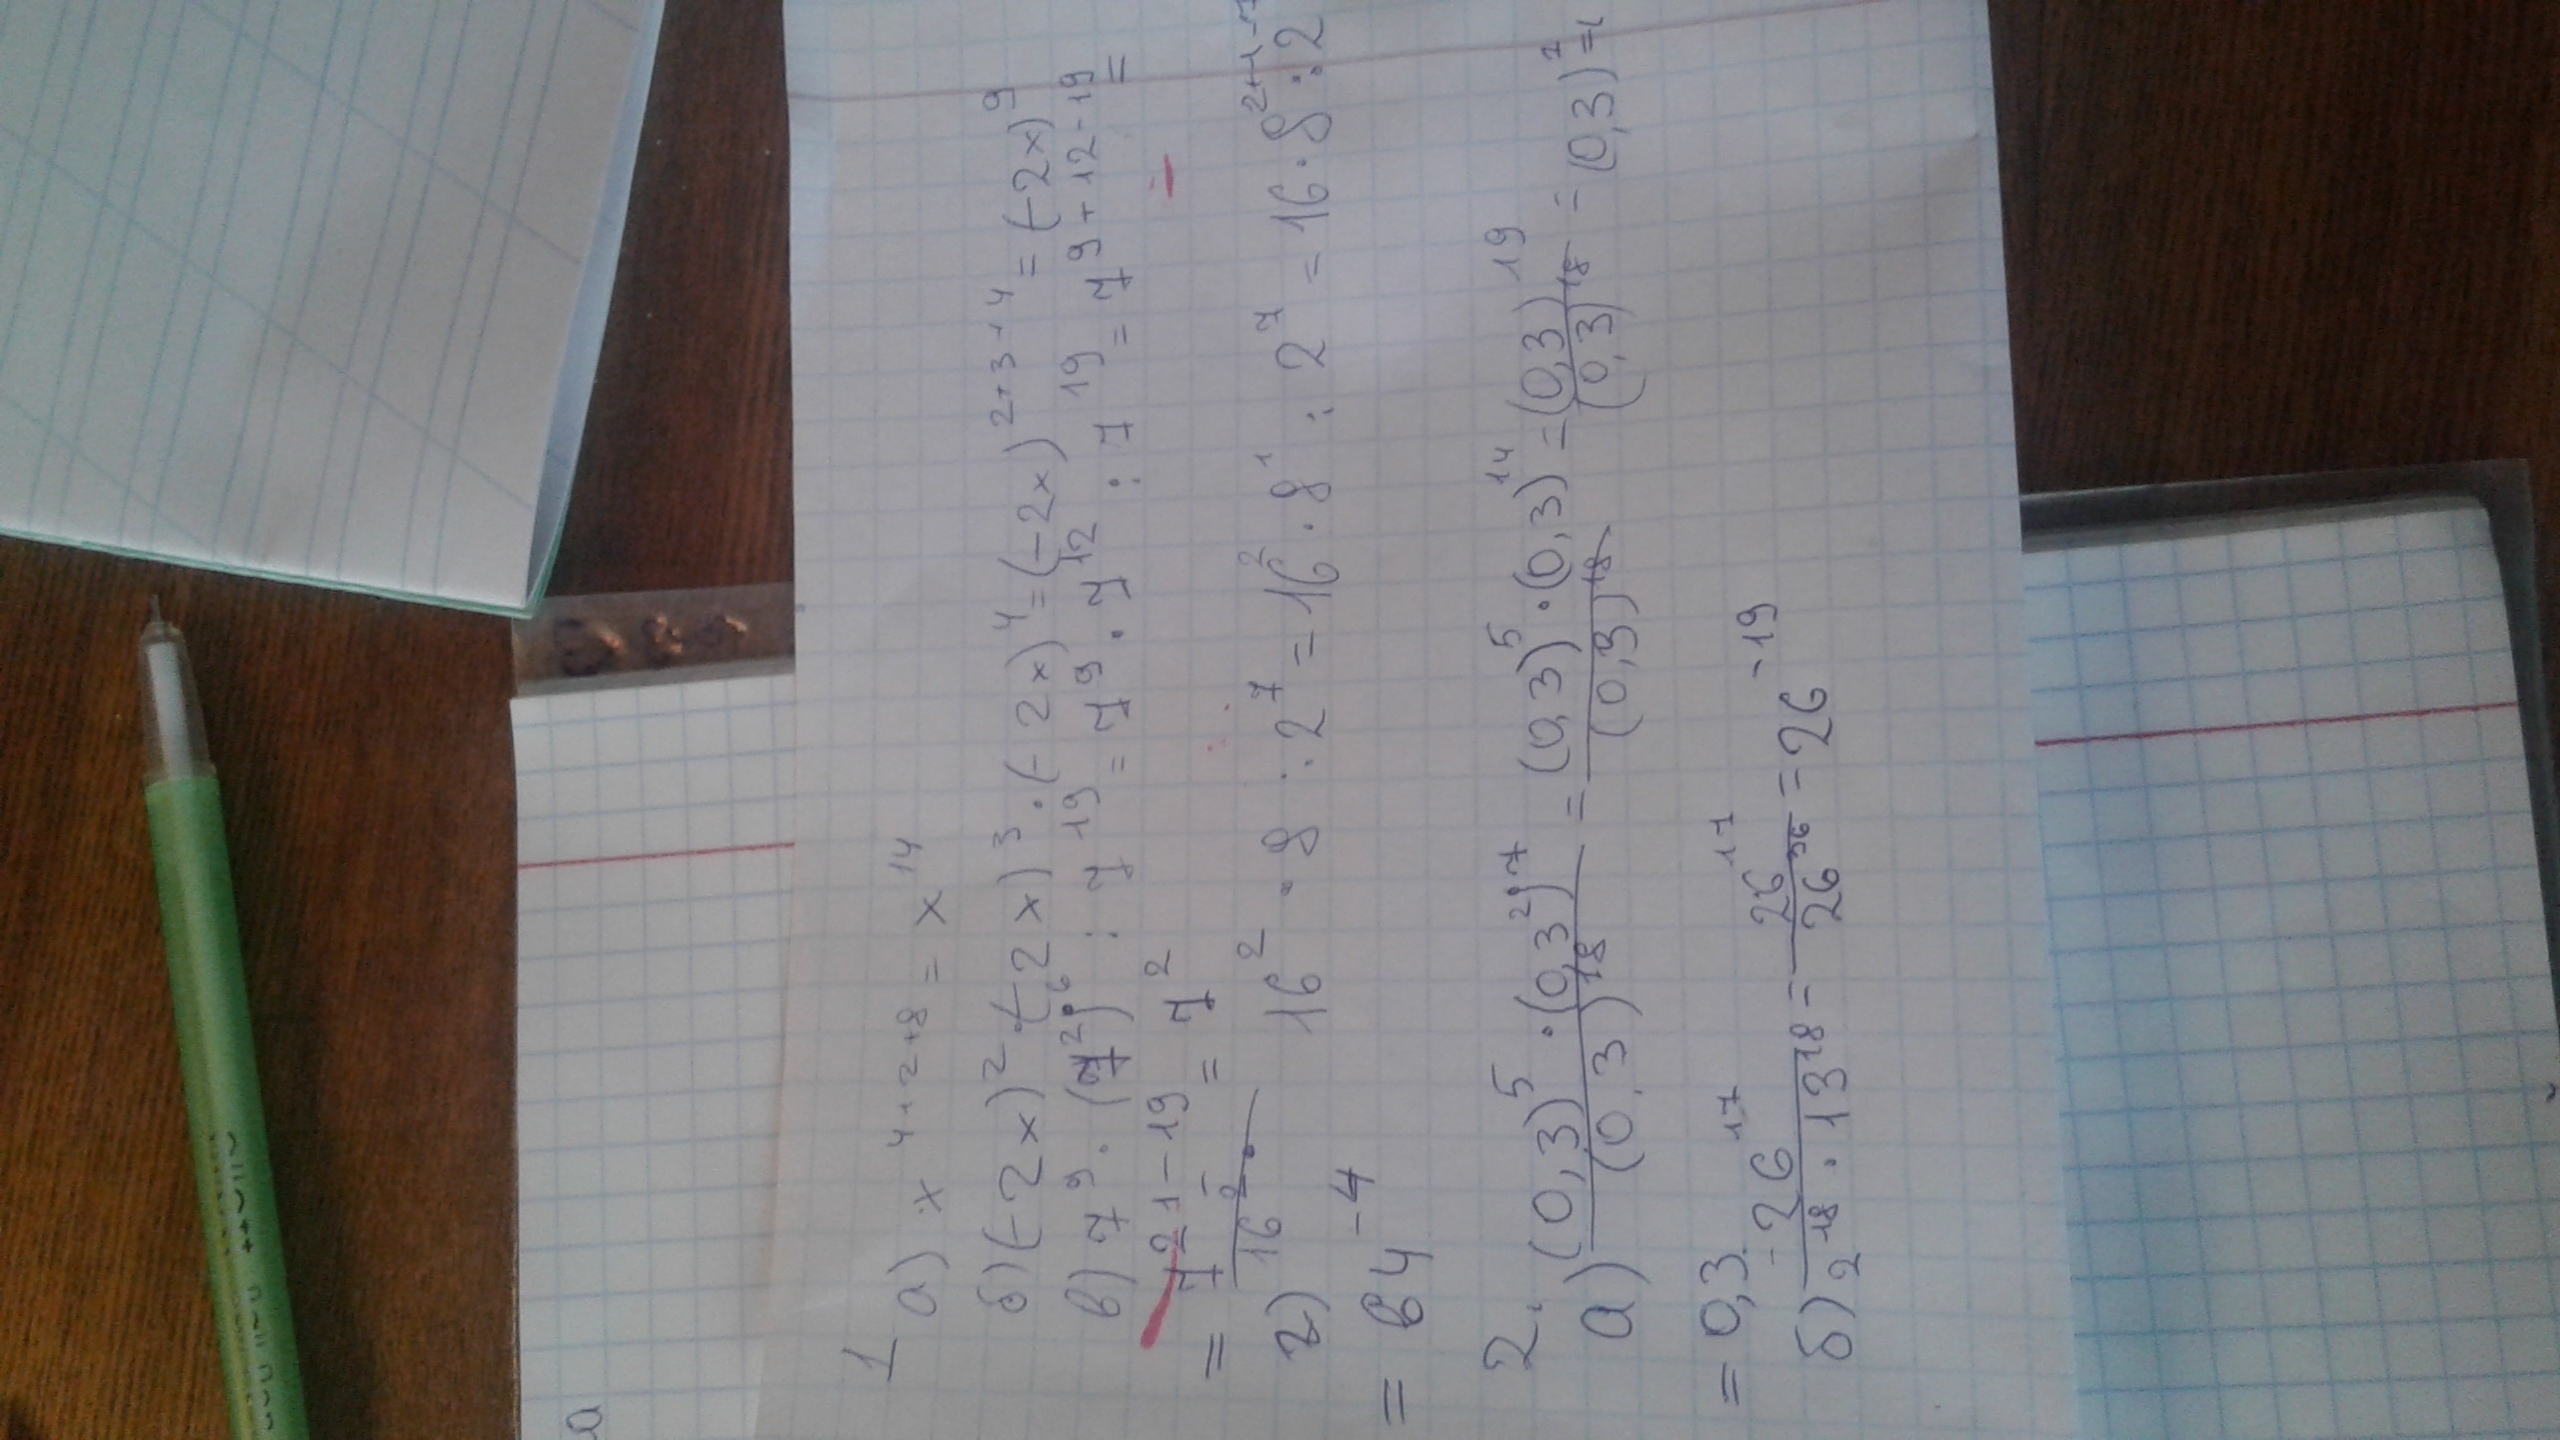 1
а) x^4+2+8 = x^14
б) (-2x)^2 · (-2x)^3 · (-2x)^4 = (-2x)^2+3+4 = (-2x)^9
в) 7^9 · (7^2)^6 : 7^19 = 7^9 · 7^12 : 7^19 = 7^9+12-19 =
= 7^21-19 = 7^2
г) 16^2 · 8 : 2^7 = 16^2 · 8^1 : 2^7 = 16 · 8^2+1-7 : 2
= 64^-4
2.
а) (0,3)^5 · (0,3^2)^7 / (0,3)^18 = (0,3)^5 · (0,3)^14 / (0,3)^18 = (0,3)^19 / (0,3)^18 = (0,3)^1 =
= 0,3
б) 26^17 / 2^18 · 13^18 = 26^17 / 26^36 = 26^-19
а